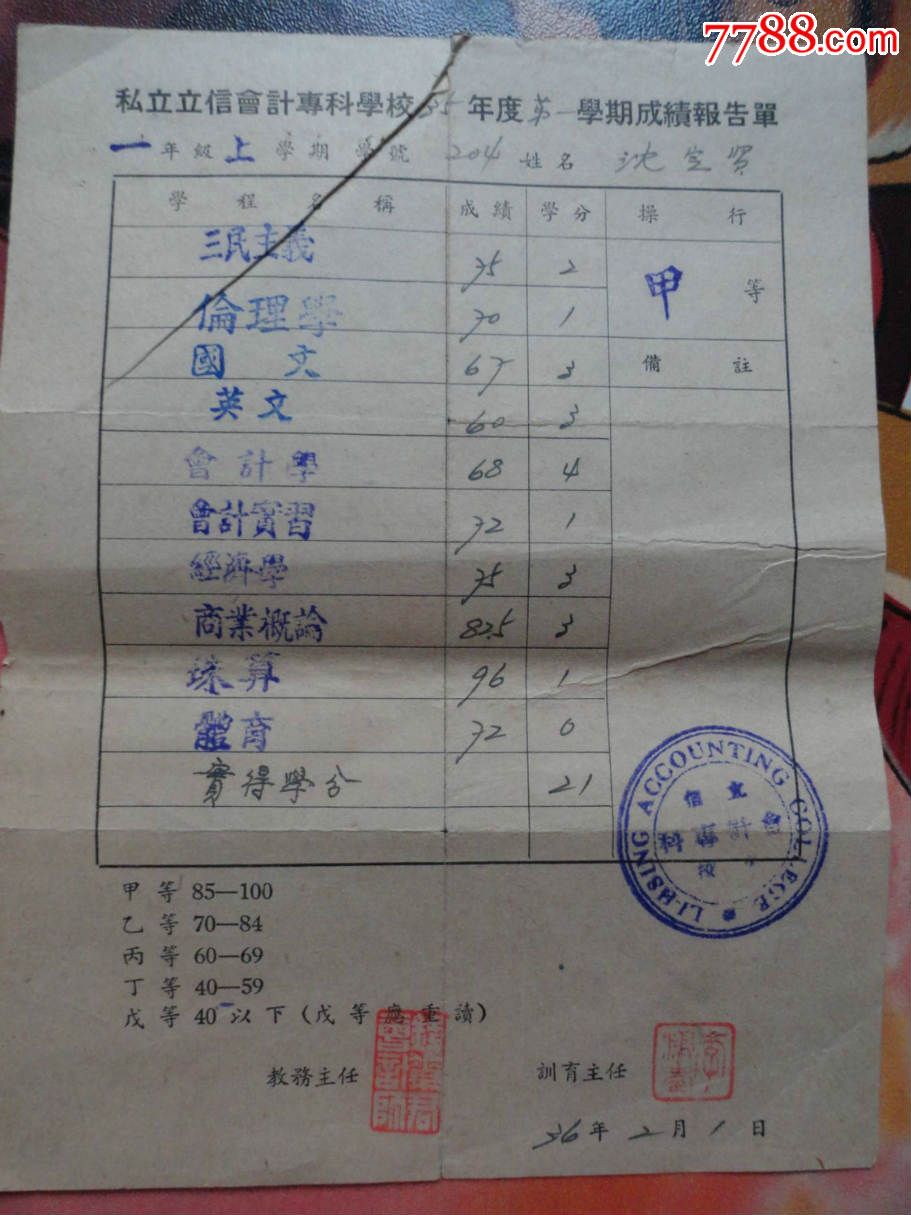 7788.com
私立立信會計專科學校35年度第一學期成績報告單
一年級上學期學號 204 姓名 沈定賢
學程名稱 成績 學分 操行
三民主義 75 2 甲等
倫理學 70 1
國文 67 3 備註
英文 60 3
會計學 68 4
會計實習 72 1
經濟學 75 3
商業概論 82.5 3
珠算 96 1
體育 72 0
實得學分 21
LI-HSING ACCOUNTING COLLEGE
立信
會計專科
學校
甲等 85—100
乙等 70—84
丙等 60—69
丁等 40—59
戊等 40以下(戊等應重讀)
教務主任 訓育主任
36年2月1日